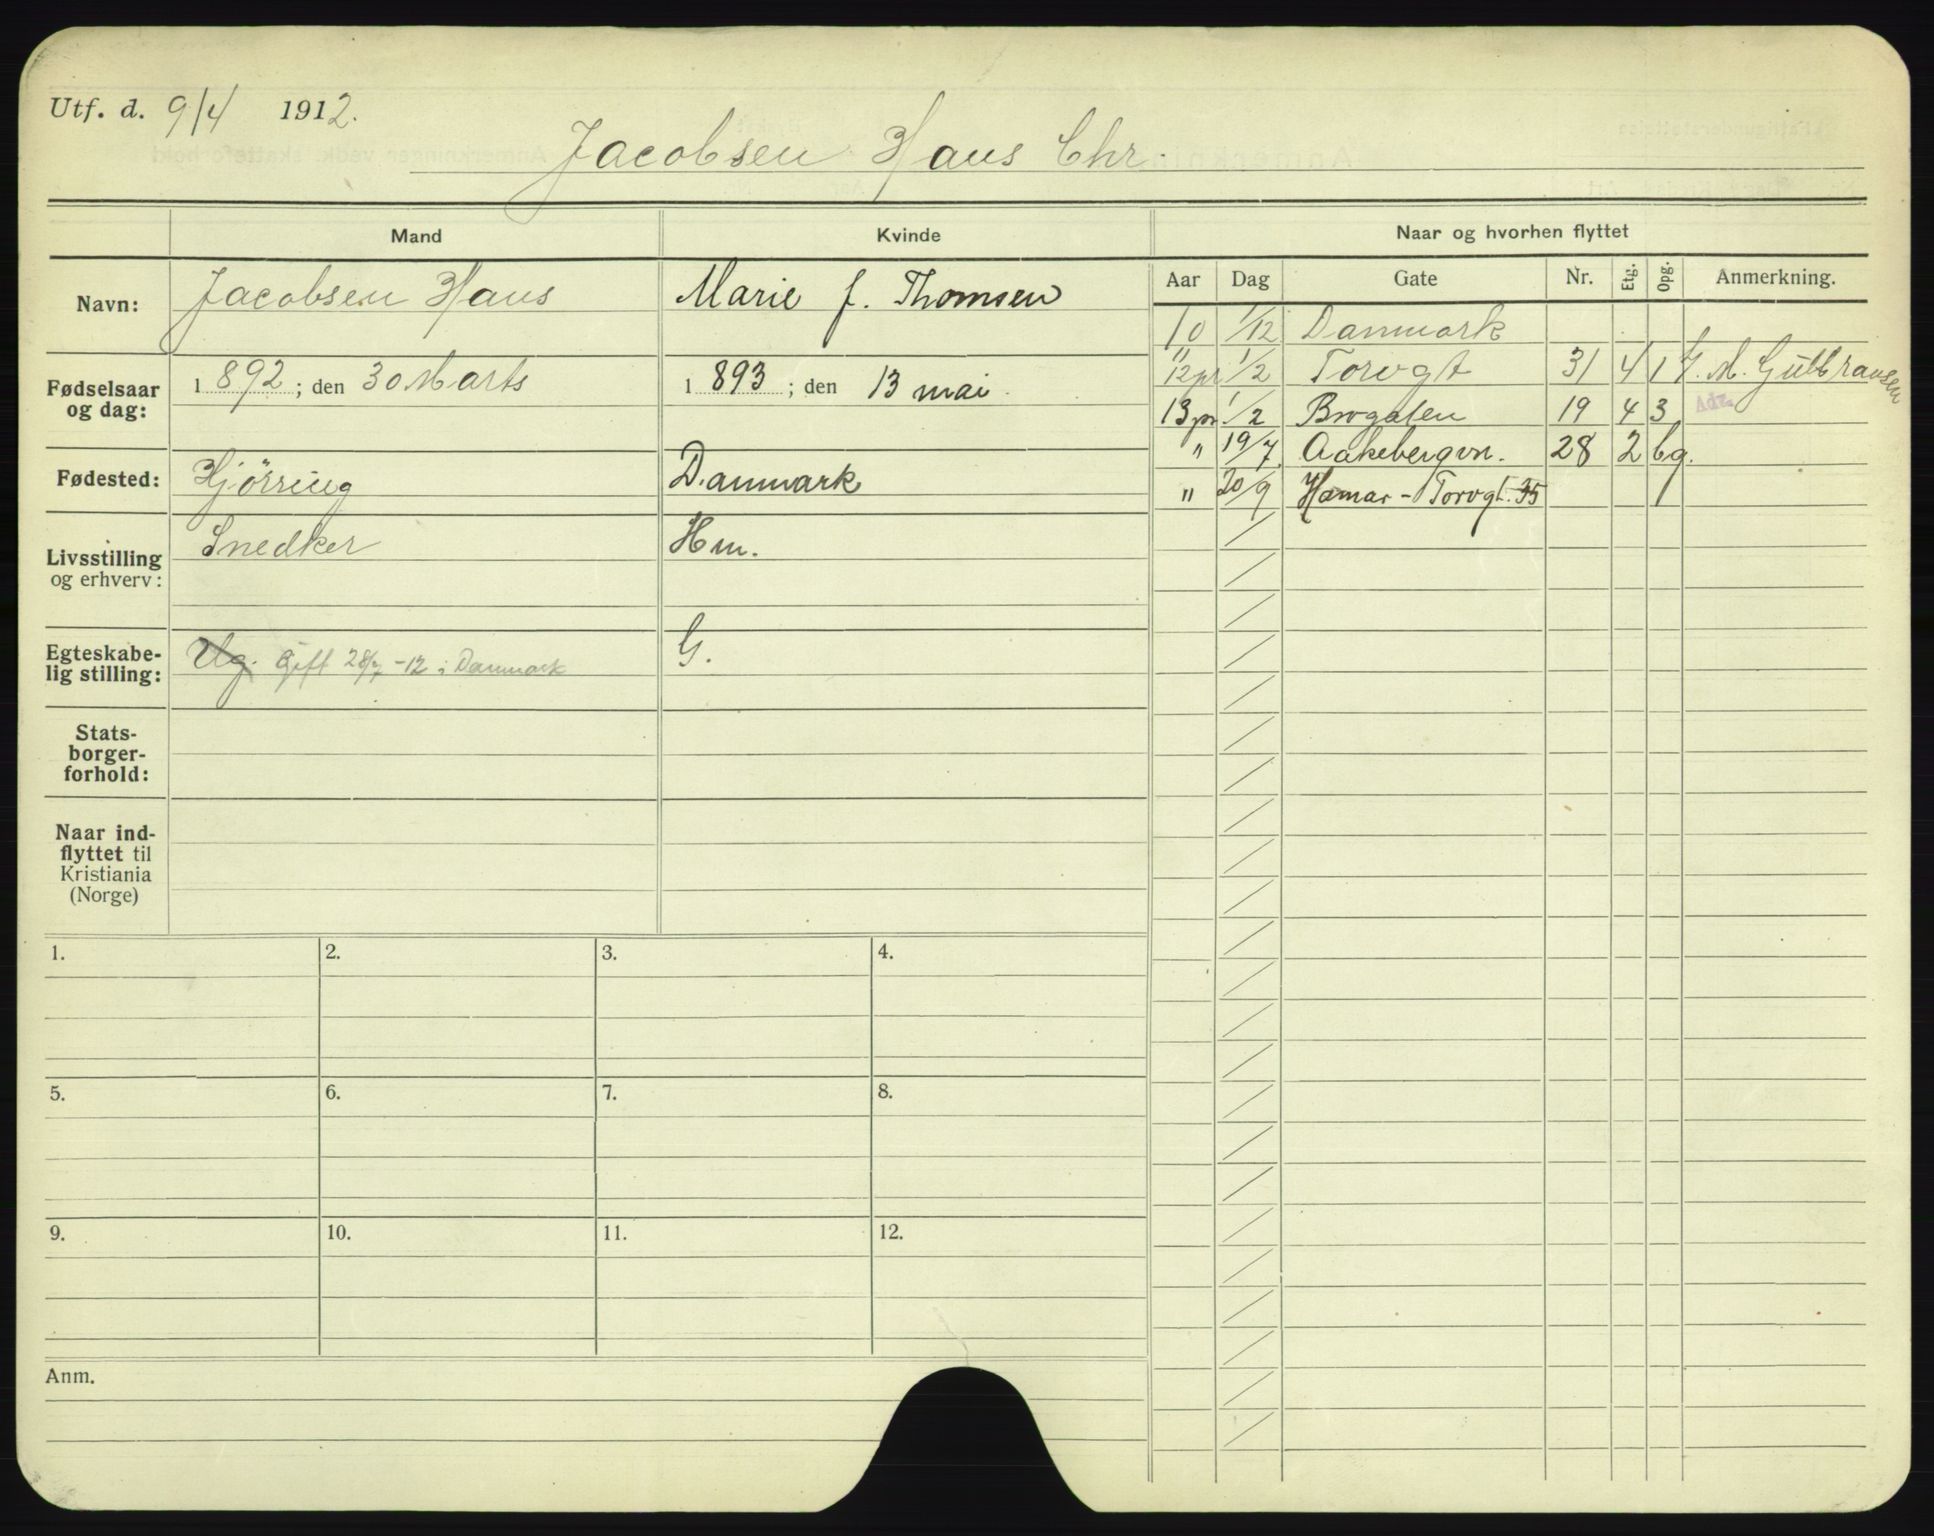 Utf. d. 9/4 1912.
Jacobsen Hans Chr.
Mand Kvinde Naar og hvorhen flyttet
Aar Dag Gate Nr. Etg. Opg. Anmerkning.
Navn: Jacobsen Hans Marie f. Thomsen
10 1/12 Danmark
" 12 pr 1/2 Torvgt 31 4 1 G. M. Gulbransen
Fødselsaar og dag: 1892; den 30 Marts 1893; den 13 mai.
13 pr 1/2 Brogaten 19 4 3 Adr.
" 19/7 Aakebergvn. 28 2 bg.
Fødested: Hjörring Danmark
" 20/9 Hamar - Torvgt. 35
Livsstilling og erhverv: Snedker Hm.
Egteskabe-
lig stilling: Ug. Gift 28/7 -12 i Danmark G.
Stats-
borger-
forhold:
Naar ind-
flyttet til
Kristiania
(Norge)
1. 2. 3. 4.
5. 6. 7. 8.
9. 10. 11. 12.
Anm.